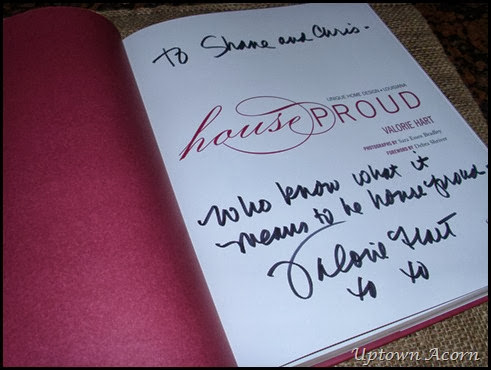 To Shane and Chris.
UNIQUE HOME DESIGN • LOUISIANA
house PROUD
VALORIE HART
PHOTOGRAPHS BY Sara Essex Bradley
FOREWORD BY Debra Shriver
Who know what it
means to be house proud.
Valorie Hart
xo xo
Uptown Acorn